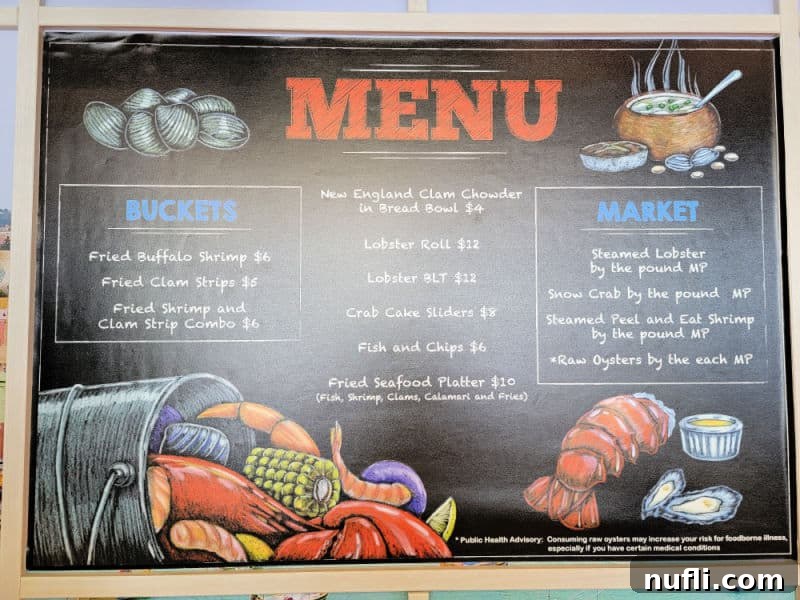 MENU
BUCKETS
Fried Buffalo Shrimp $6
Fried Clam Strips $5
Fried Shrimp and
Clam Strip Combo $6
New England Clam Chowder
in Bread Bowl $4
Lobster Roll $12
Lobster BLT $12
Crab Cake Sliders $8
Fish and Chips $6
Fried Seafood Platter $10
(Fish, Shrimp, Clams, Calamari and Fries)
MARKET
Steamed Lobster
by the pound MP
Snow Crab by the pound MP
Steamed Peel and Eat Shrimp
by the pound MP
*Raw Oysters by the each MP
* Public Health Advisory: Consuming raw oysters may increase your risk for foodborne illness,
especially if you have certain medical conditions
nufli.com